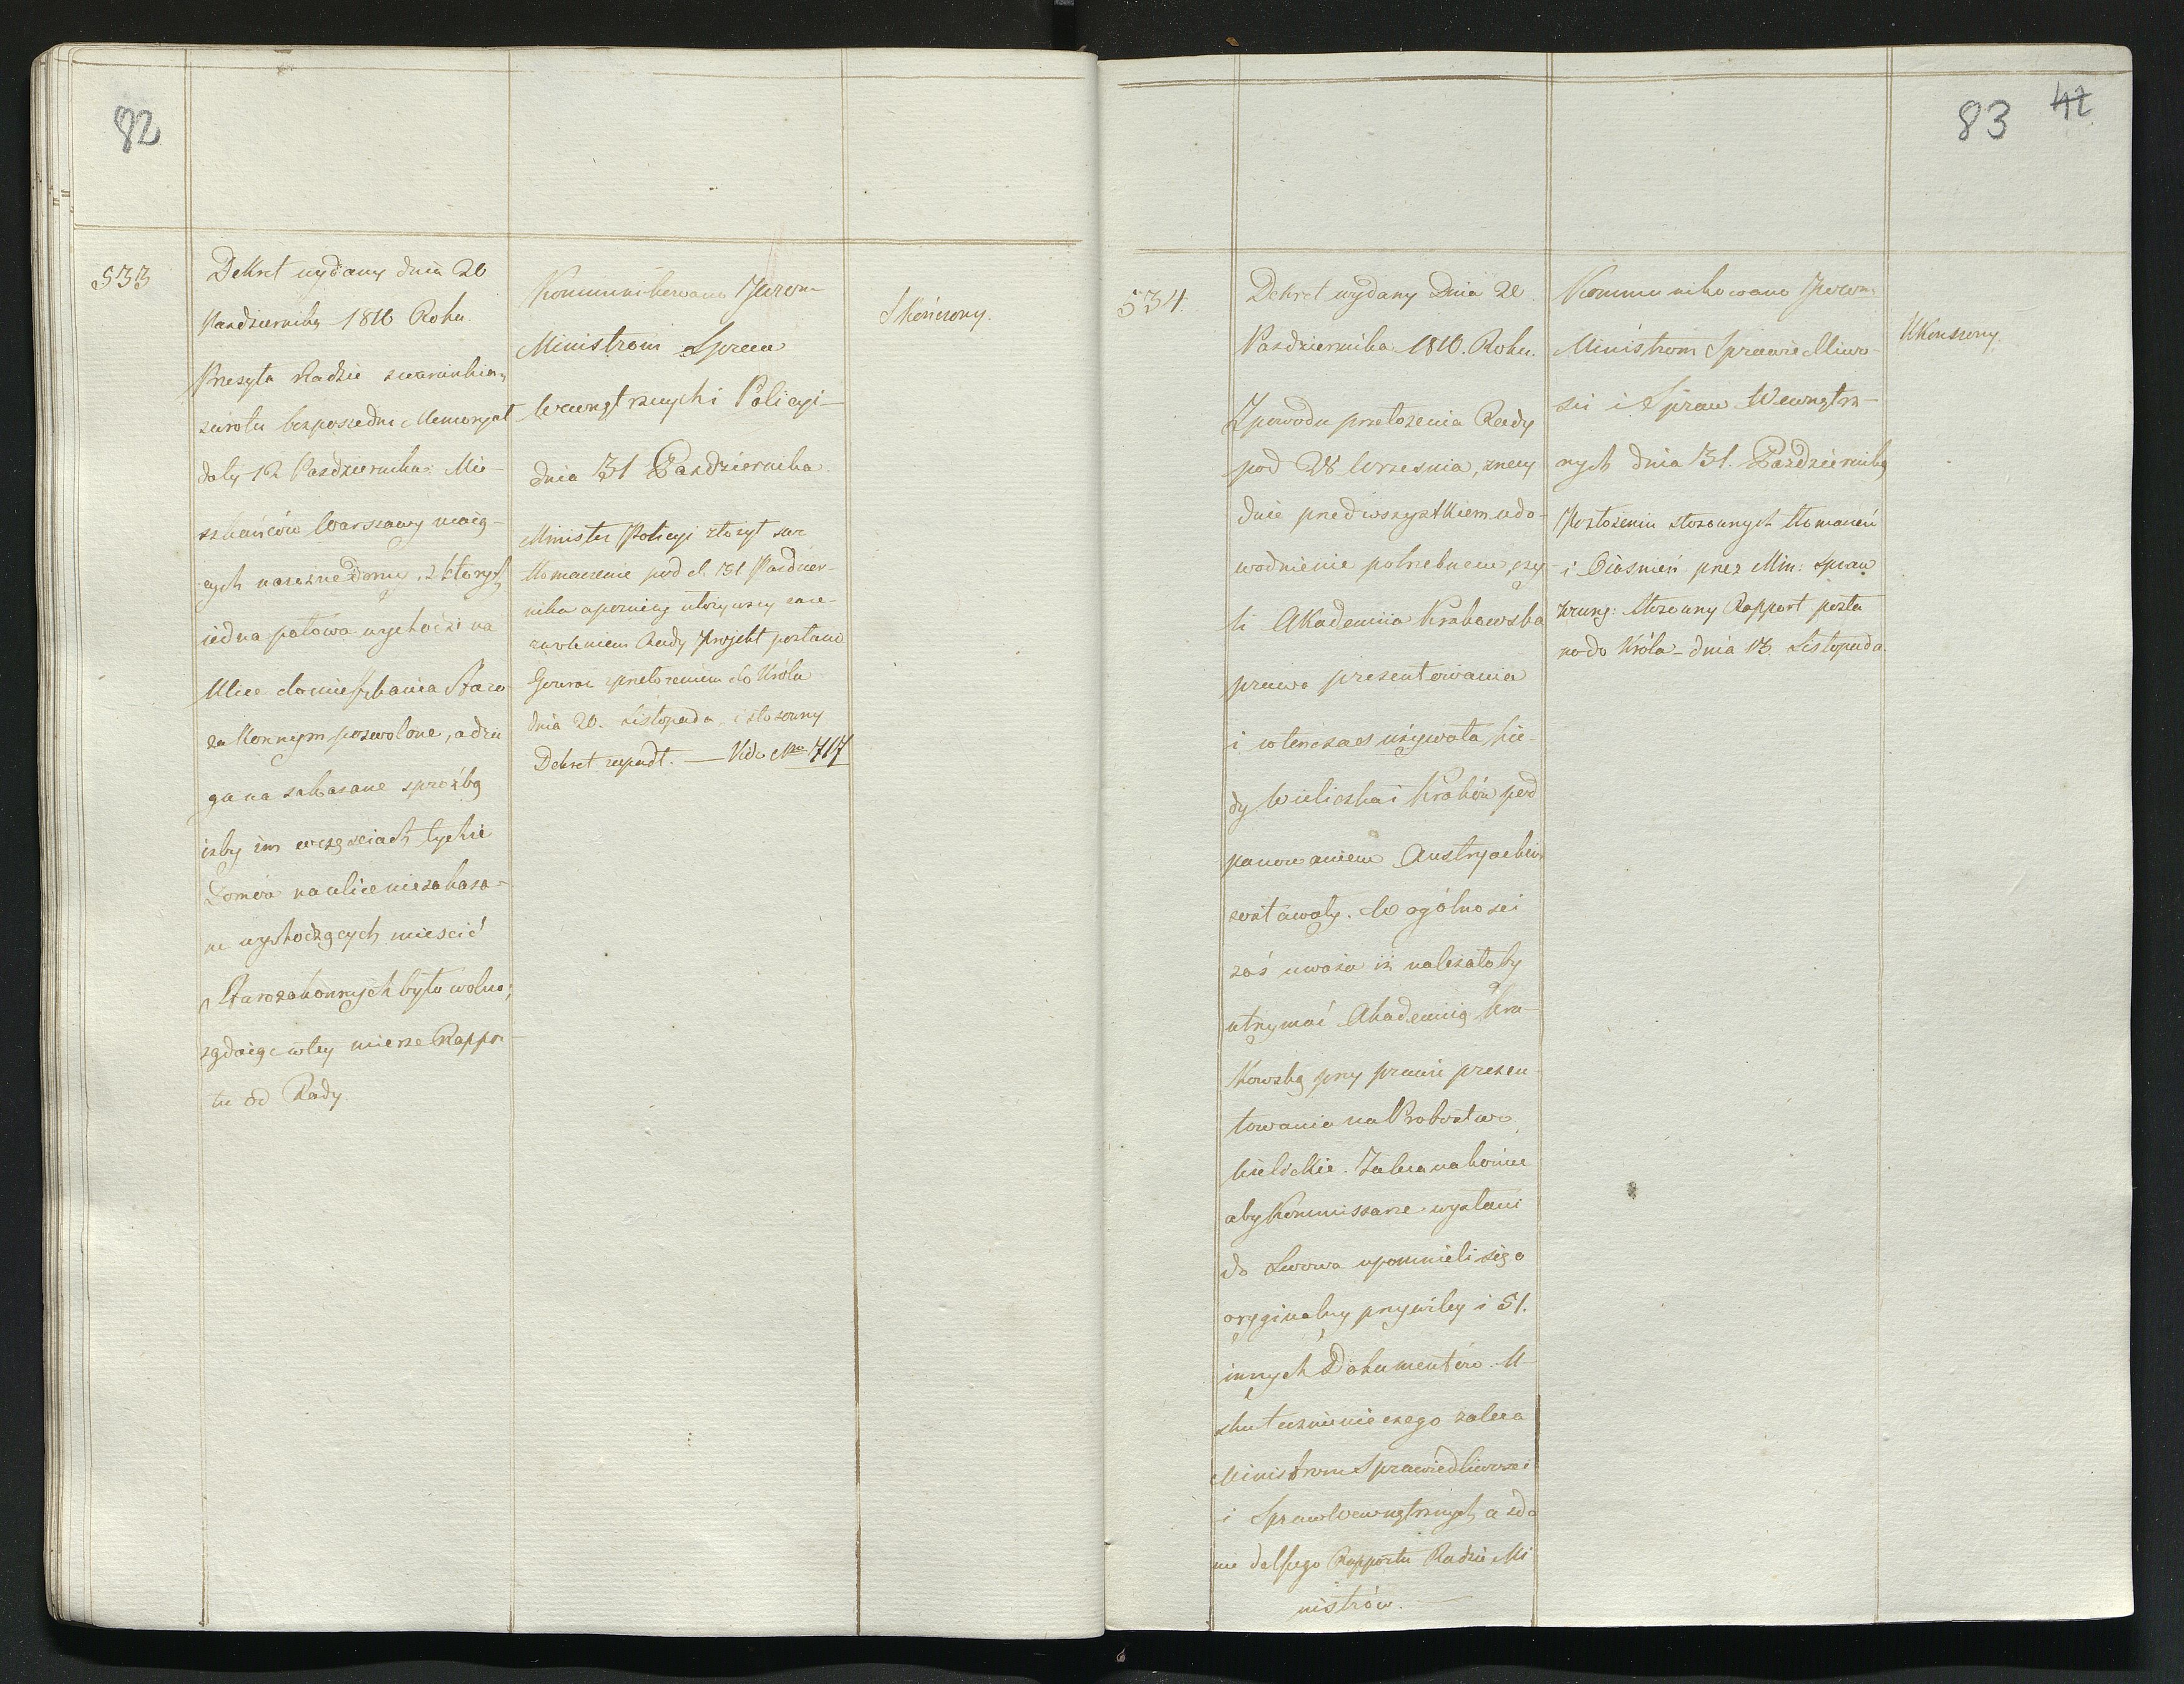 82
533
Dekret wydany dnia 20
Pazdziernika 1810 Roku.
Przesyła Radzie zwarunkiem
zwrotu bezposredni Memoryał
daty 12 Pazdziernika Mie-
szkańców Warszawy maią-
cych narożne Domy, z których
iedna połowa wychodzi na
Ulice do mieszkania Staro-
zakonnym pozwolone, a dru
ga na zakazane z prożbą
izby im wczęsciach tychże
Domów na ulice niezakaza-
ne wychodzących miescić
Starozakonnych było wolno;
żądaiąc w tey mierze Rappor-
tu od Rady
Kommunikowano JWW
Ministrom Spraw
Wewnętrznych i Policyi
dnia 31 Pazdziernika
Minister Policyi złożył swe
tłomaczenie pod d. 31 Pazdzier-
nika a pozniey ułożywszy za ze-
zwoleniem Rady Projekt postano
z przełożeniem do Króla
dnia 20. Listopada, i stosowny
Dekret zapadł. — Vide Nro 717
Skończony.
83 42
534.
Dekret wydany Dnia 20
Pazdziernika 1810. Roku.
Z powodu przełożenia Rady
pod 28 Wrzesnia, znay
duie przedwszystkiem udo-
wodnienie potrzebnem, czy-
li Akademiia Krakowska
prawa prezentowania
i wtenczas używała kie-
dy Wieliczka i Kraków pod
panowaniem Austryackim
zostawały. W ogólnosci
zaś uważa iż należałoby
utrzymać Akademią Kra-
kowską przy prawie prezen-
towania na Probostwo
Wielickie. Zaleca nakoniec
aby Kommissarze wysłani
do Lwowa upomnieli się o
oryginalny przywiley i 51.
innych Dokumentów. U-
skutecznienie czego zaleca
Ministrom Sprawiedliwosci
i Spraw Wewnętrznych, a zda
nie dalszego Rapportu Radzie Mi
nistrów. —
Kommunikowano JWW
Ministrom Sprawiedliwo-
sci i Spraw Wewnętrz-
nych dnia 31. Pazdziernika
Po złożeniu stosownych tłomaczeń
i Obiasnień przez Min: Spraw
Wewng: stosowny Rapport posła
no do Króla – dnia 13. Listopada
Ukonczony.